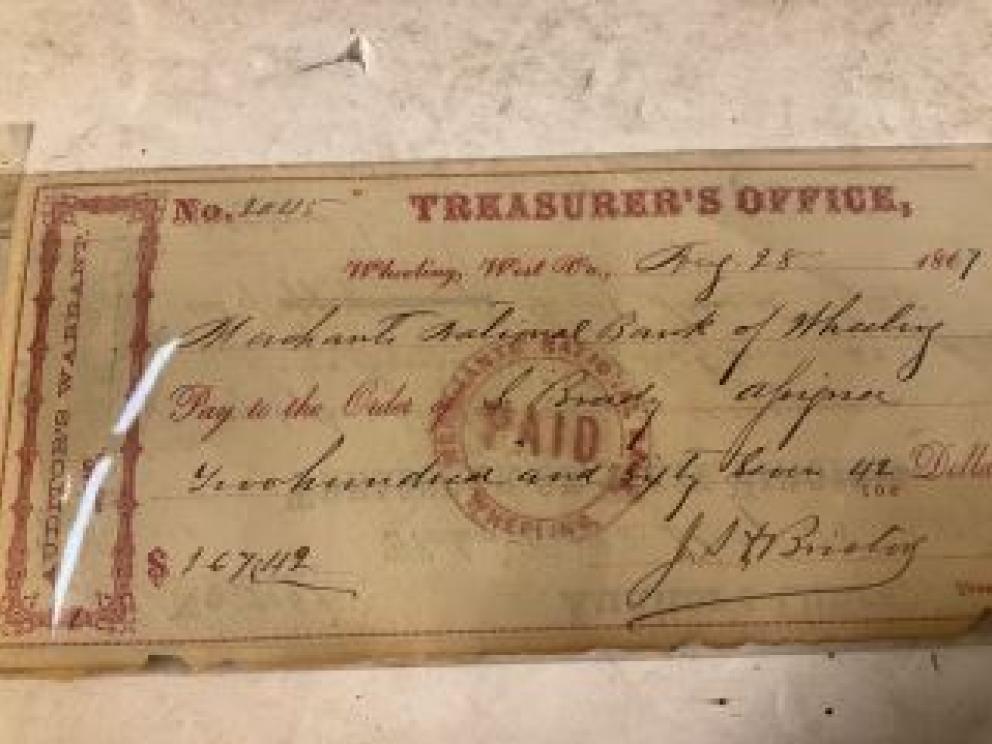 No. 2045 TREASURER'S OFFICE,
Wheeling, West Va., Aug 28 1867
Merchants National Bank of Wheeling
Pay to the Order of S Brady
Two hundred and fifty Seven 42 Dolla
100
$ 167.42
AUDITOR'S WARRANT.
MERCHANTS NATIO
PAID
WHEELING